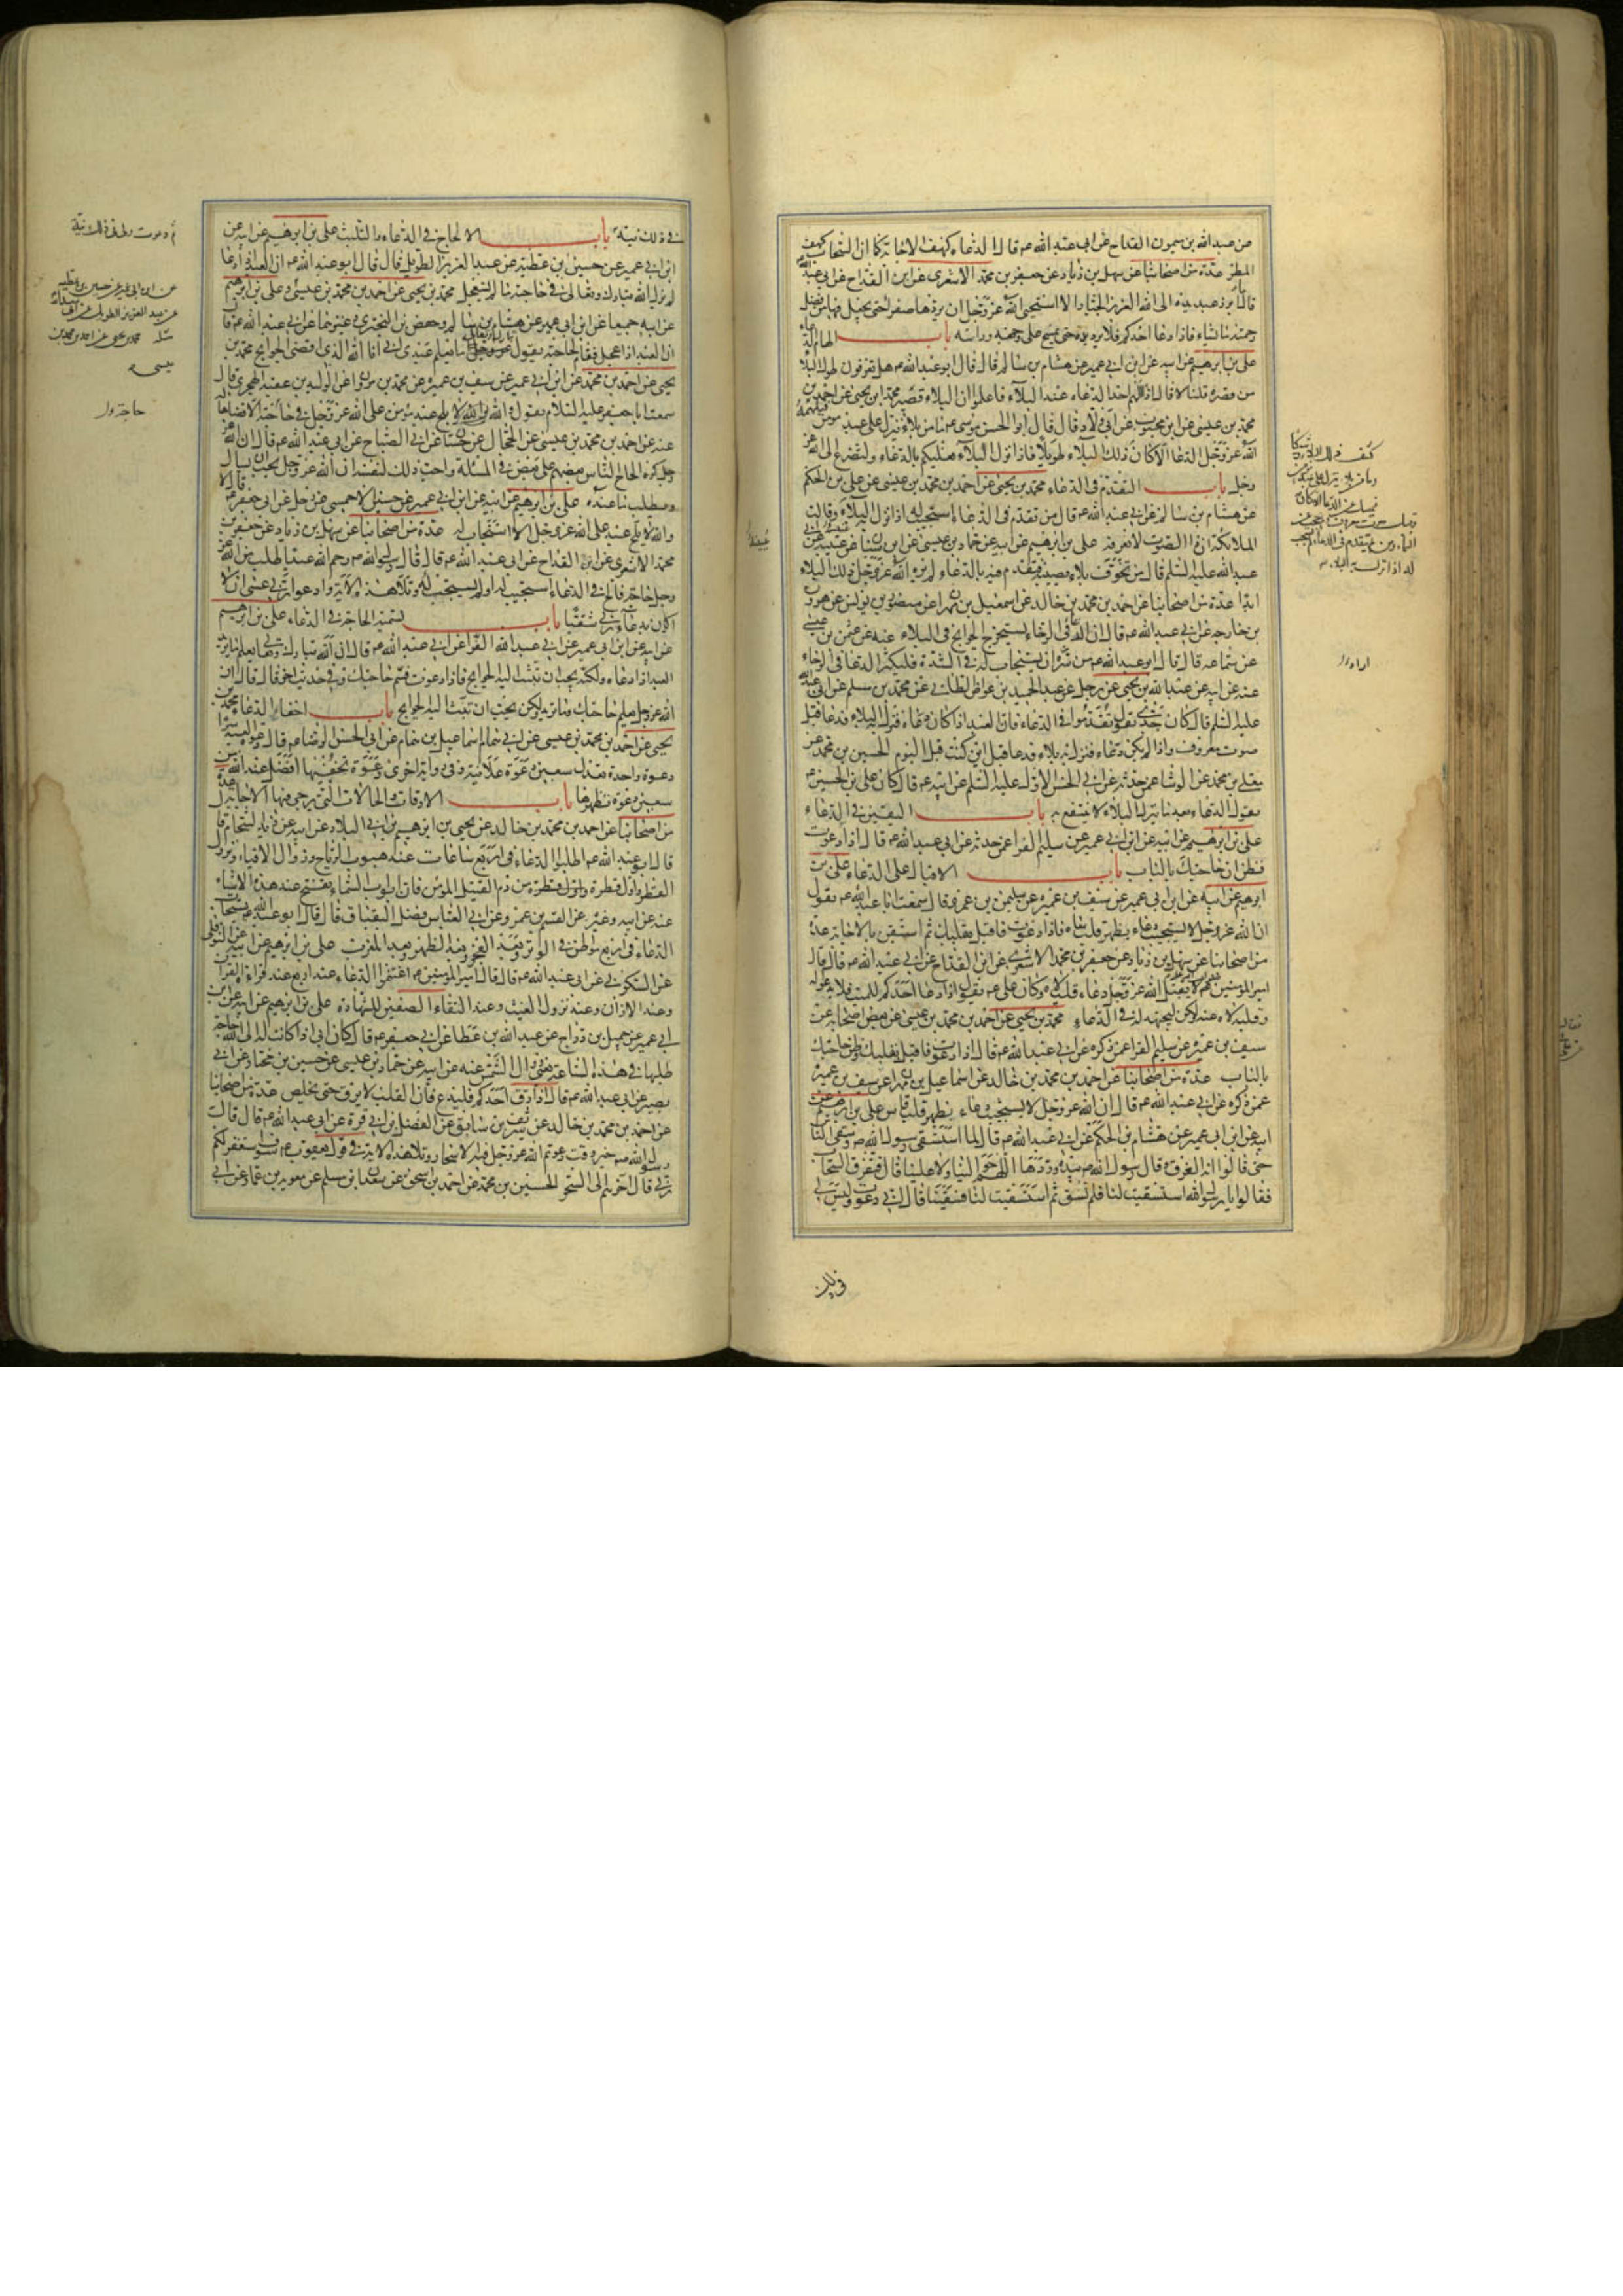 عن عبدالله بن ميمون القداح عن ابى عبد الله ع قال الدعاء كهف الاجابة كما ان السحاب كهف
المطر عدة من اصحابنا عن سهل بن زياد عن جعفر بن محمد الاشعرى عن ابن القداح عن ابى عبد الله
قال ما ابرز عبد يده الى الله العزيز الجبار الا استحيى الله عز وجل ان يردها صفرا حتى يجعل فيها من فضل
رحمته ما يشاء فاذا دعا احدكم فلا يرد يده حتى يمسح على وجهه وراسه باب الهام الدعاء
على بن ابرهيم عن ابيه عن ابن ابى عمير عن هشام بن سالم قال قال ابو عبد الله ع هل تعرفون طول البلاء
من قصره قلنا لا قال اذا الهم احد الدعاء عند البلاء فاعلموا ان البلاء قصير محمد بن يحيى عن احمد بن
محمد بن عيسى عن ابن محبوب عن ابى ولاد قال قال ابو الحسن موسى ع ما من بلاء ينزل على عبد مومن فيلهمه
الله عز وجل الدعا الا كان ذلك البلاء طويلا فاذا نزل البلاء فعليكم بالدعاء والتضرع الى الله عز
وجل باب التقدم فى الدعاء محمد بن يحيى عن احمد بن محمد بن عيسى عن على بن الحكم
عن هشام بن سالم عن ابى عبد الله ع قال من تقدم فى الدعاء استجيب له اذا نزل البلاء وقالت
الملائكة ان ذا الصوت لا نعرفه على بن ابرهيم عن ابيه عن حماد بن عيسى عن ابن سنان عن عنبسة عن ابى
عبد الله عليه السلم قال من تخوف بلاء يصيبه فتقدم فيه بالدعاء لم يره الله عز وجل ذلك البلاء
ابدا عدة من اصحابنا عن احمد بن محمد بن خالد عن اسمعيل بن مهران عن منصور بن يونس عن هرون
بن خارجه عن ابى عبد الله ع قال ان الدعاء فى الرخاء يستخرج الحوايج فى البلاء عنه عن عثمن بن عيسى
عن سماعه قال قال ابو عبد الله ع من سره ان يستجاب له فى الشدة فليكثر الدعا فى الرخاء
عنه عن ابيه عن عبد الله بن يحيى عن رجل عن عبد الحميد بن غواص الطائى عن محمد بن مسلم عن ابى عبد الله
عليه السلم قال كان جدى يقول تقدموا فى الدعاء فان العبد اذا كان دعاء فنزل به البلاء فدعا قيل
صوت معروف واذا لم يكن دعاء فنزل به بلاء فدعا قيل اين كنت قبل اليوم الحسين بن محمد عن
معلى بن محمد عن الوشا عمن حدثه عن ابى الحسن الاول عليه السلم عن ابيه ع قال كان على بن الحسين ع
يقول الدعاء بعد ما ينزل البلاء لا ينتفع به باب اليقين فى الدعاء
على بن ابرهيم عن ابيه عن ابن ابى عمير عن سليم الفرا عمن حدثه عن ابى عبد الله ع قال اذا دعوت
فظن ان حاجتك بالباب باب الاقبال على الدعاء على بن
ابرهيم عن ابيه عن ابن ابى عمير عن سيف بن عميرة عن سليمن بن عمرو قال سمعت ابا عبد الله ع يقول
ان الله عز وجل لا يستجيب دعاء بظهر قلب ساه فاذا دعوت فاقبل بقلبك ثم استيقن بالاجابة عدة
من اصحابنا عن سهل بن زياد عن جعفر بن محمد الاشعرى عن ابن القداح عن ابى عبد الله ع قال قال
امير المومنين ع لا يقبل الله عز وجل دعاء قلب لاه وكان على ع يقول اذا دعا احدكم للميت فلا يدعو له
وقلبه لاه عنه ولكن ليجتهد له فى الدعاء محمد بن يحيى عن احمد بن محمد بن عيسى عن بعض اصحابه عن
سيف بن عميرة عن سليم الفرا عمن ذكره عن ابى عبد الله ع قال اذا دعوت فاقبل بقلبك وظن حاجتك
بالباب عدة من اصحابنا عن احمد بن محمد بن خالد عن اسماعيل بن مهران عن سيف بن عميرة
عمن ذكره عن ابى عبد الله ع قال ان الله عز وجل لا يستجيب دعاء بظهر قلب قاس على بن ابرهيم عن
ابيه عن ابن ابى عمير عن هشام بن الحكم عن ابى عبد الله ع قال لما استسقى رسول الله ص وسقى الناس
حتى قالوا انه الغرق وقال رسول الله ص بيده وردها اللهم حوالينا ولا علينا قال فتفرق السحاب
فقالوا يا رسول الله استسقيت لنا فلم نسق ثم استسقيت لنا فسقينا قال انى دعوت وليس لى
فى ذلك
فى ذلك نية باب الالحاح فى الدعاء والتلبث على بن ابرهيم عن ابيه عن
ابن ابى عمير عن حسين بن عطية عن عبد العزيز الطويل قال قال ابو عبد الله ع ان العبد اذا دعا
لم يزل الله تبارك وتعالى فى حاجته ما لم يستعجل محمد بن يحيى عن احمد بن محمد بن عيسى وعلى بن ابرهيم
عن ابيه جميعا عن ابن ابى عمير عن هشام بن سالم وحفص بن البخترى وغيرهما عن ابى عبد الله ع قال
ان العبد اذا عجل فقام لحاجته يقول الله عز وجل اما يعلم عبدى انى انا الله الذى اقضى الحوايج محمد بن
يحيى عن احمد بن محمد عن ابن ابى عمير عن سيف بن عميرة عن محمد بن مروان عن الوليد بن عقبة الهجرى قال
سمعت ابا جعفر عليه السلام يقول والله لا يلح عبد مومن على الله عز وجل فى حاجته الا قضاها له
عنه عن احمد بن محمد بن عيسى عن الحجال عن حسان عن ابى الصباح عن ابى عبد الله ع قال ان الله عز
وجل كره الحاح الناس بعضهم على بعض فى المسئلة واحب ذلك لنفسه ان الله عز وجل يحب ان يسال
ويطلب ما عنده على بن ابرهيم عن ابيه عن ابن ابى عمير عن حسين الاحمسى عن رجل عن ابى جعفر ع قال لا
والله لا يلح عبد على الله عز وجل الا استجاب له عدة من اصحابنا عن سهل بن زياد عن جعفر بن
محمد الاشعرى عن ابن القداح عن ابى عبد الله ع قال قال رسول الله ص رحم الله عبدا طلب من الله عز
وجل حاجة فالح فى الدعاء استجيب له او لم يستجب له وتلا هذه الاية وادعوا ربى عسى ان لا
اكون بدعاء ربى شقيا باب تسمية الحاجة فى الدعاء على بن ابرهيم
عن ابيه عن ابن ابى عمير عن ابى عبد الله الفرا عن ابى عبد الله ع قال ان الله تبارك وتعالى يعلم ما يريد
العبد اذا دعاه ولكنه يحب ان تبث اليه الحوايج فاذا دعوت فسم حاجتك وفى حديث اخر قال قال ان
الله عز وجل يعلم حاجتك وما تريد ولكن يحب ان تبث اليه الحوايج باب اخفاء الدعاء محمد بن
يحيى عن احمد بن محمد بن عيسى عن ابى همام اسماعيل بن همام عن ابى الحسن الرضا ع قال دعوة العبد سرا
دعوة واحدة تعدل سبعين دعوة علانية وفى رواية اخرى دعوة تخفيها افضل عند الله من
سبعين دعوة تظهرها باب الاوقات والحالات التى يرجى فيها الاجابة عدة
من اصحابنا عن احمد بن محمد بن خالد عن يحيى بن ابرهيم بن ابى البلاد عن ابيه عن زيد الشحام قال
قال ابو عبد الله ع اطلبوا الدعاء فى اربع ساعات عند هبوب الرياح وزوال الافياء ونزول
القطر واول قطرة من دم القتيل المومن فان ابواب السماء تفتح عند هذه الاشياء
عنه عن ابيه وغيره عن القسم بن عروة عن ابى العباس فضل البقباق قال قال ابو عبد الله ع يستجاب
الدعاء فى اربع مواطن فى الوتر وبعد الفجر وبعد الظهر وبعد المغرب على بن ابرهيم عن ابيه عن النوفلى
عن السكونى عن ابى عبد الله ع قال قال امير المومنين ع اغتنموا الدعاء عند اربع عند قراءة القران
وعند الاذان وعند نزول الغيث وعند التقاء الصفين للشهادة على بن ابرهيم عن ابيه عن ابن
ابى عمير عن جميل بن دراج عن عبد الله بن عطا عن ابى جعفر ع قال كان ابى اذا كانت له الى الله حاجة
طلبها فى هذه الساعة يعنى زوال الشمس عنه عن ابيه عن حماد بن عيسى عن حسين بن مختار عن ابى
بصير عن ابى عبد الله ع قال اذا رق احدكم فليدع فان القلب لا يرق حتى يخلص عدة من اصحابنا
عن احمد بن محمد بن خالد عن شريف بن سابق عن الفضل بن ابى قرة عن ابى عبد الله ع قال قال
رسول الله ص خير وقت دعوتم الله عز وجل فيه الاسحار وتلا هذه الاية فى قول يعقوب ع سوف استغفر لكم
ربى قال اخرهم الى السحر الحسين بن محمد عن احمد بن اسحق عن سعدان بن مسلم عن معوية بن عمار عن ابى